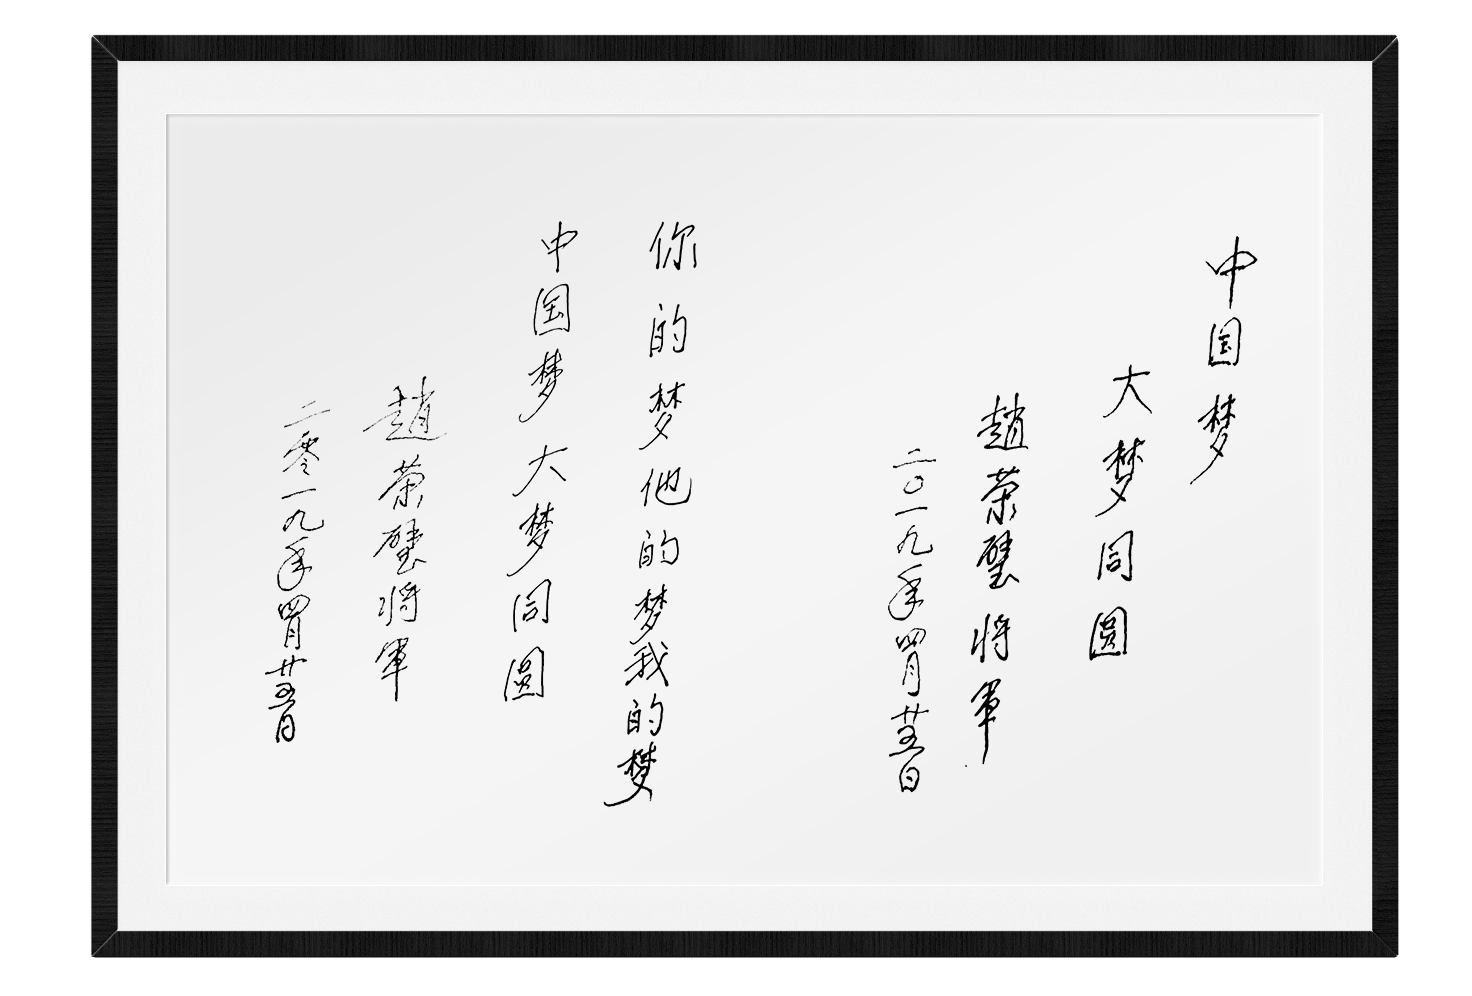 中国梦
大梦同圆
趙荣璧将軍
二〇一九年四月廿五日
你的梦他的梦我的梦
中国梦大梦同圆
趙荣璧将軍
二零一九年四月廿五日